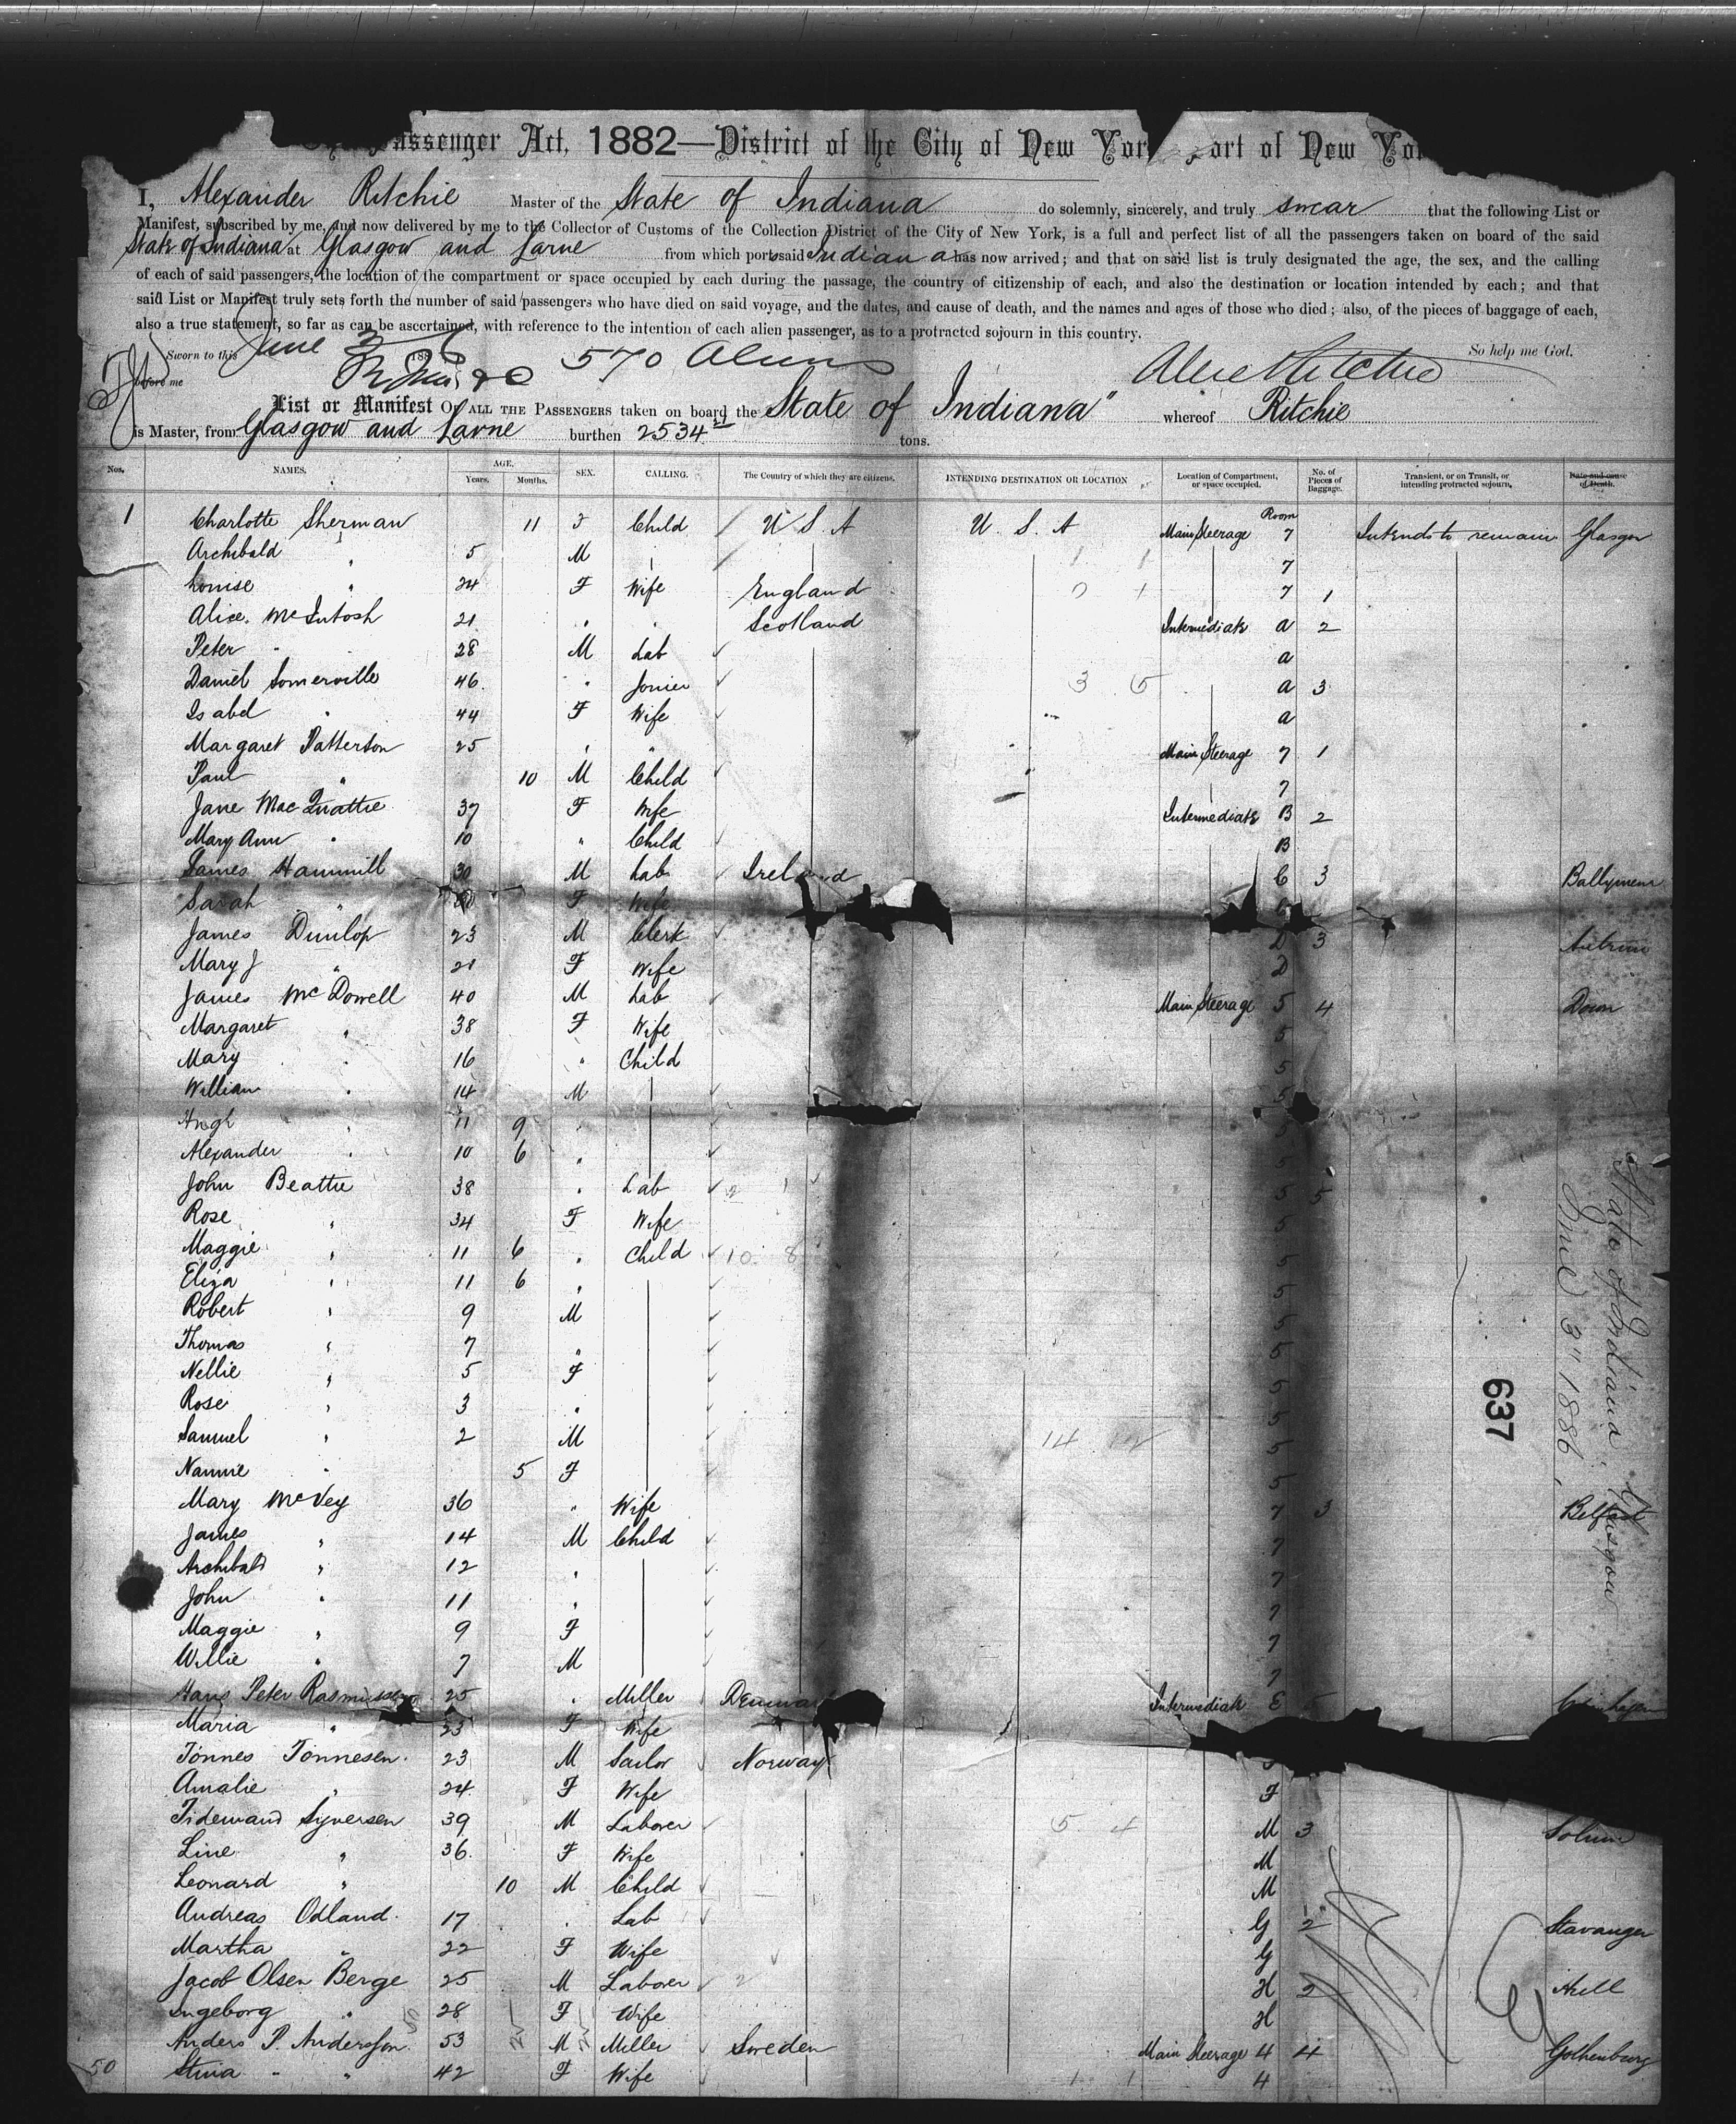 Passenger Act, 1882—District of the City of New York, Port of New Yor
I, Alexander Ritchie Master of the State of Indiana do solemnly, sincerely, and truly swear that the following List or
Manifest, subscribed by me, and now delivered by me to the Collector of Customs of the Collection District of the City of New York, is a full and perfect list of all the passengers taken on board of the said
State of Indiana at Glasgow and Larne from which port said Indiana has now arrived; and that on said list is truly designated the age, the sex, and the calling
of each of said passengers, the location of the compartment or space occupied by each during the passage, the country of citizenship of each, and also the destination or location intended by each; and that
said List or Manifest truly sets forth the number of said passengers who have died on said voyage, and the dates, and cause of death, and the names and ages of those who died; also, of the pieces of baggage of each,
also a true statement, so far as can be ascertained, with reference to the intention of each alien passenger, as to a protracted sojourn in this country.
Sworn to this June 3 1886 570 So help me God.
before me Alex Ritchie
List or Manifest OF ALL THE PASSENGERS taken on board the State of Indiana" whereof Ritchie
is Master, from Glasgow and Larne burthen 2534 tons.
Nos. NAMES. AGE. Years. Months. SEX. CALLING. The Country of which they are citizens. INTENDING DESTINATION OR LOCATION Location of Compartment, or space occupied. No. of Pieces of Baggage. Transient, or on Transit, or intending protracted sojourn. Date and cause of Death.
1 Charlotte Sherman 11 F Child U S A U. S. A Main Steerage Room 7 Intends to remain Glasgow
Archibald " 5 M 7
Louise " 24 F Wife England 7 1
Alice McIntosh 21 " " Scotland Intermediate A 2
Peter " 28 M Lab A
Daniel Somerville 46 " Jonier 3 5 A 3
Isabel " 44 F Wife A
Margaret Patterson 25 " " Main Steerage 7 1
Paul " 10 M Child 7
Jane MacQuattie 37 F Wife Intermediate B 2
Mary Ann " 10 " Child B
James Hammill 30 M Lab Ireland C 3 Ballymena
Sarah " F Wife
James Dunlop 23 M Clerk D 3 Antrim
Mary J " 21 F Wife D
James McDowell 40 M Lab Main Steerage 5 4 Down
Margaret " 38 F Wife 5
Mary " 16 " Child 5
William " 14 M 5
Hugh " 11 9 " 5
Alexander " 10 6 " 5
John Beattie 38 " Lab 2 1 5 5
Rose " 34 F Wife 5
Maggie " 11 6 " Child 10 8 5
Eliza " 11 6 " 5
Robert " 9 M 5
Thomas " 7 " 5
Nellie " 5 F 5
Rose " 3 " 5
Samuel " 2 M 14 12 5
Nannie " 5 F 5
Mary McVey 36 " Wife 7 3 Belfast
James " 14 M Child 7
Archibald " 12 " 7
John " 11 " 7
Maggie " 9 F 7
Willie " 7 M 7
Hans Peter Rasmussen 25 " Miller Denmark Intermediate E 5
Maria " 25 F Wife
Tonnes Tonnesen 23 M Sailor Norway
Amalie " 24 F Wife F
Tidemand Syversen 39 M Laborer 5 4 M 3
Line " 36 F Wife M
Leonard " 10 M Child M
Andreas Odland 17 " Lab G 2 Stavanger
Martha " 22 F Wife G
Jacob Olsen Berge 25 M Laborer 2 H 2
Ingeborg " 28 F Wife H
Anders P. Andersson 53 M Miller Sweden Main Steerage 4 4 Gothenburg
50 Stina " " 42 F Wife 1 1 4
State of Indiana. Glasgow
June 3" 1886
637